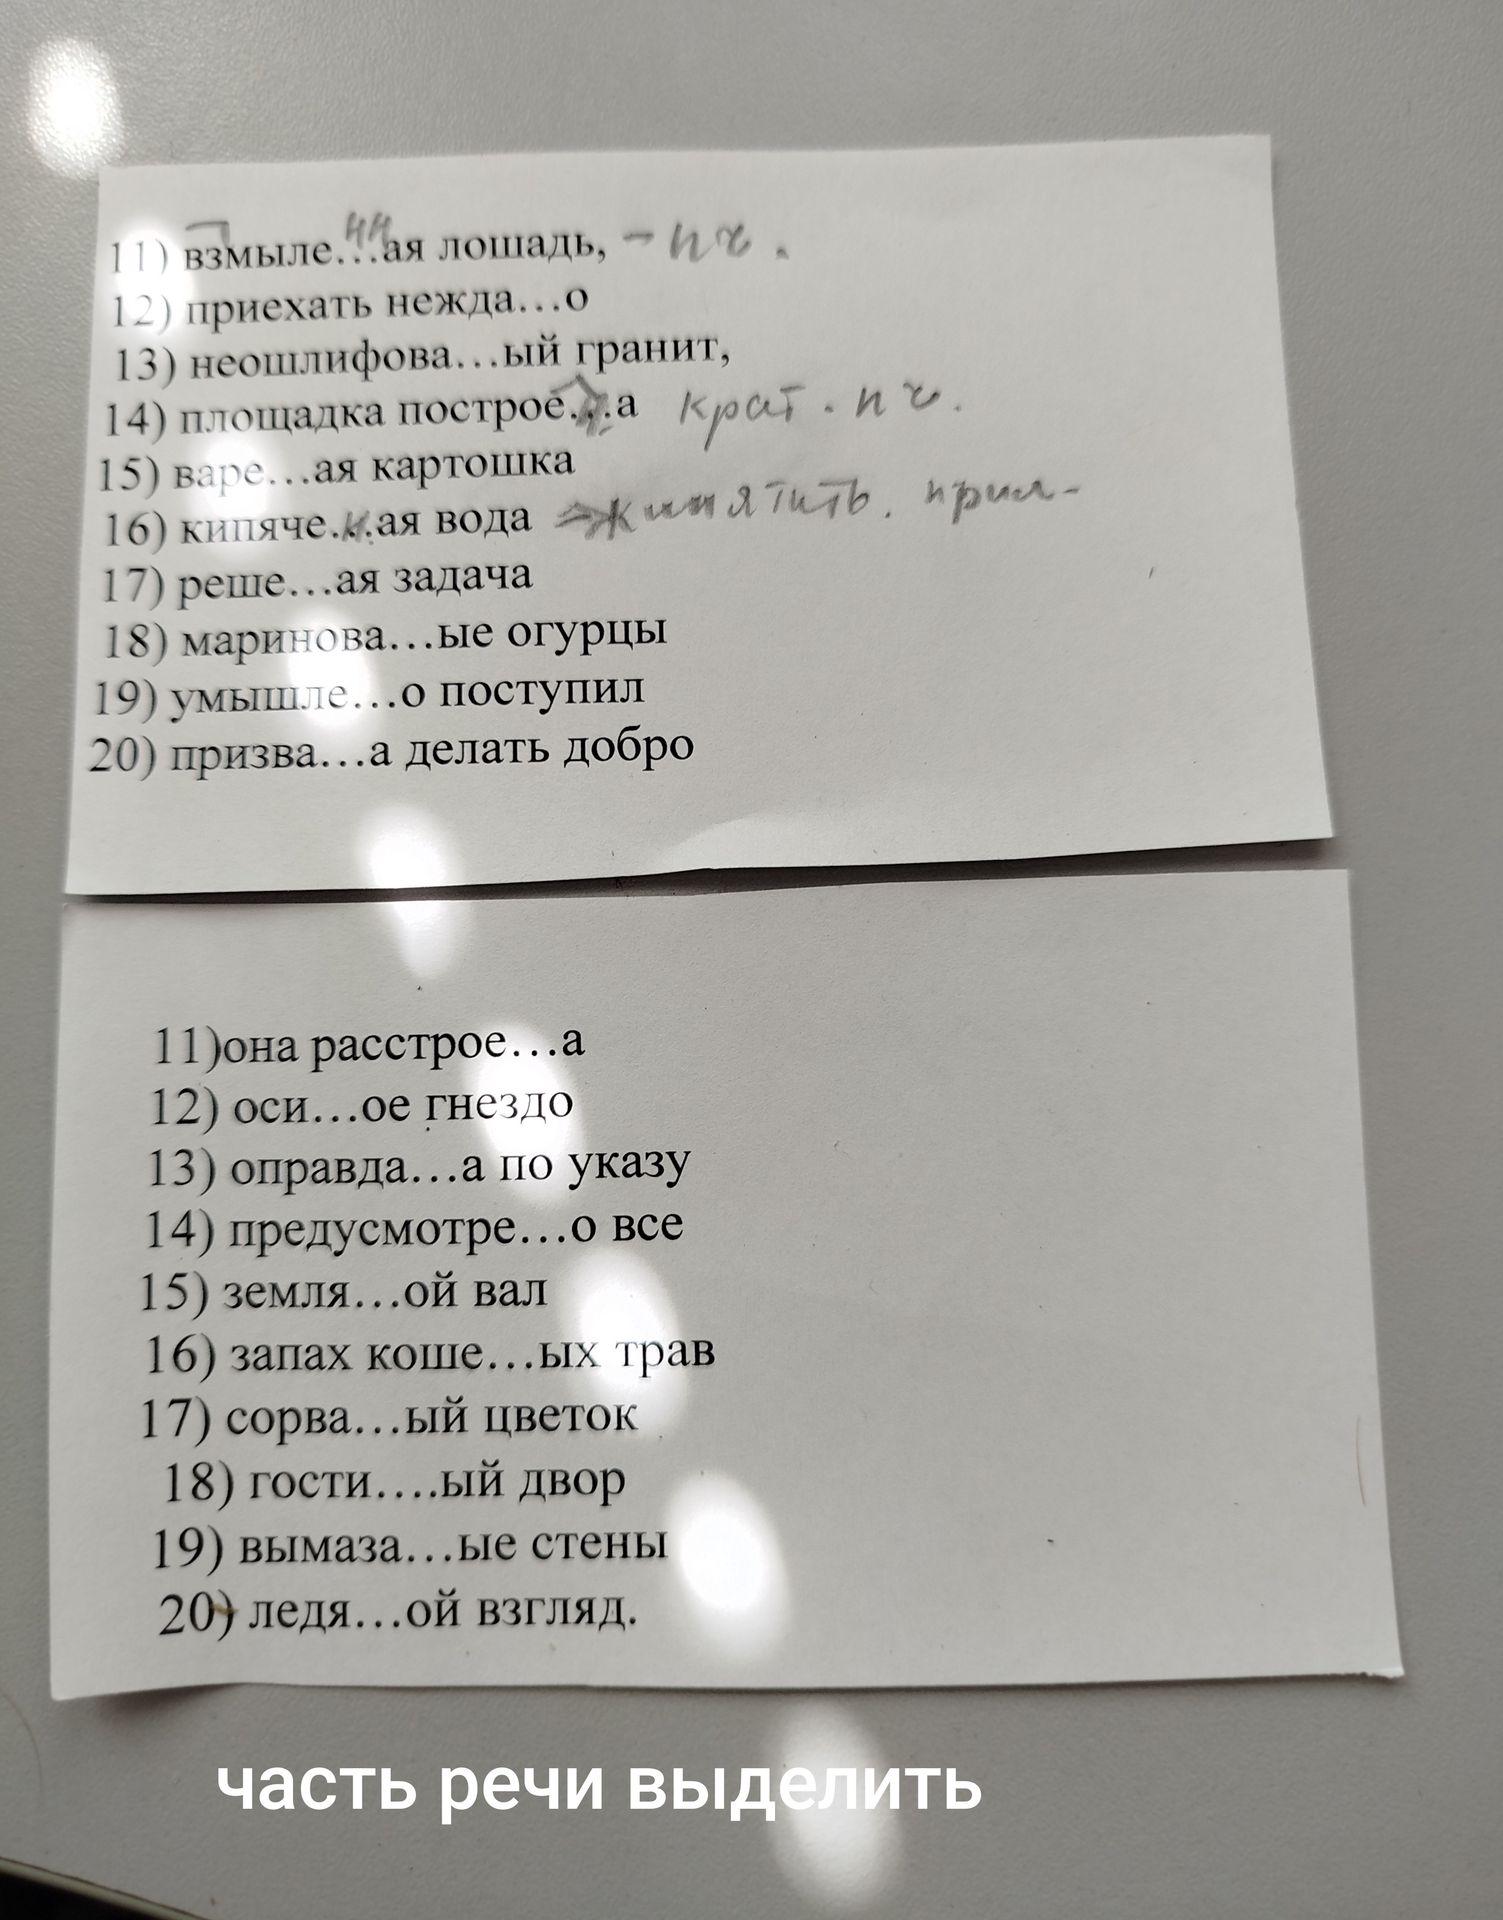 11) взмыле...ая лошадь, - пч.
нн
12) приехать нежда...о
13) неошлифова...ый гранит,
14) площадка построе...а крат. пч.
15) варе...ая картошка
16) кипяче.н.ая вода кипятить. прил-
17) реше...ая задача
18) маринова...ые огурцы
19) умышле...о поступил
20) призва...а делать добро
11)она расстрое...а
12) оси...ое гнездо
13) оправда...а по указу
14) предусмотре...о все
15) земля...ой вал
16) запах коше...ых трав
17) сорва...ый цветок
18) гости....ый двор
19) вымаза...ые стены
20) ледя...ой взгляд.
часть речи выделить